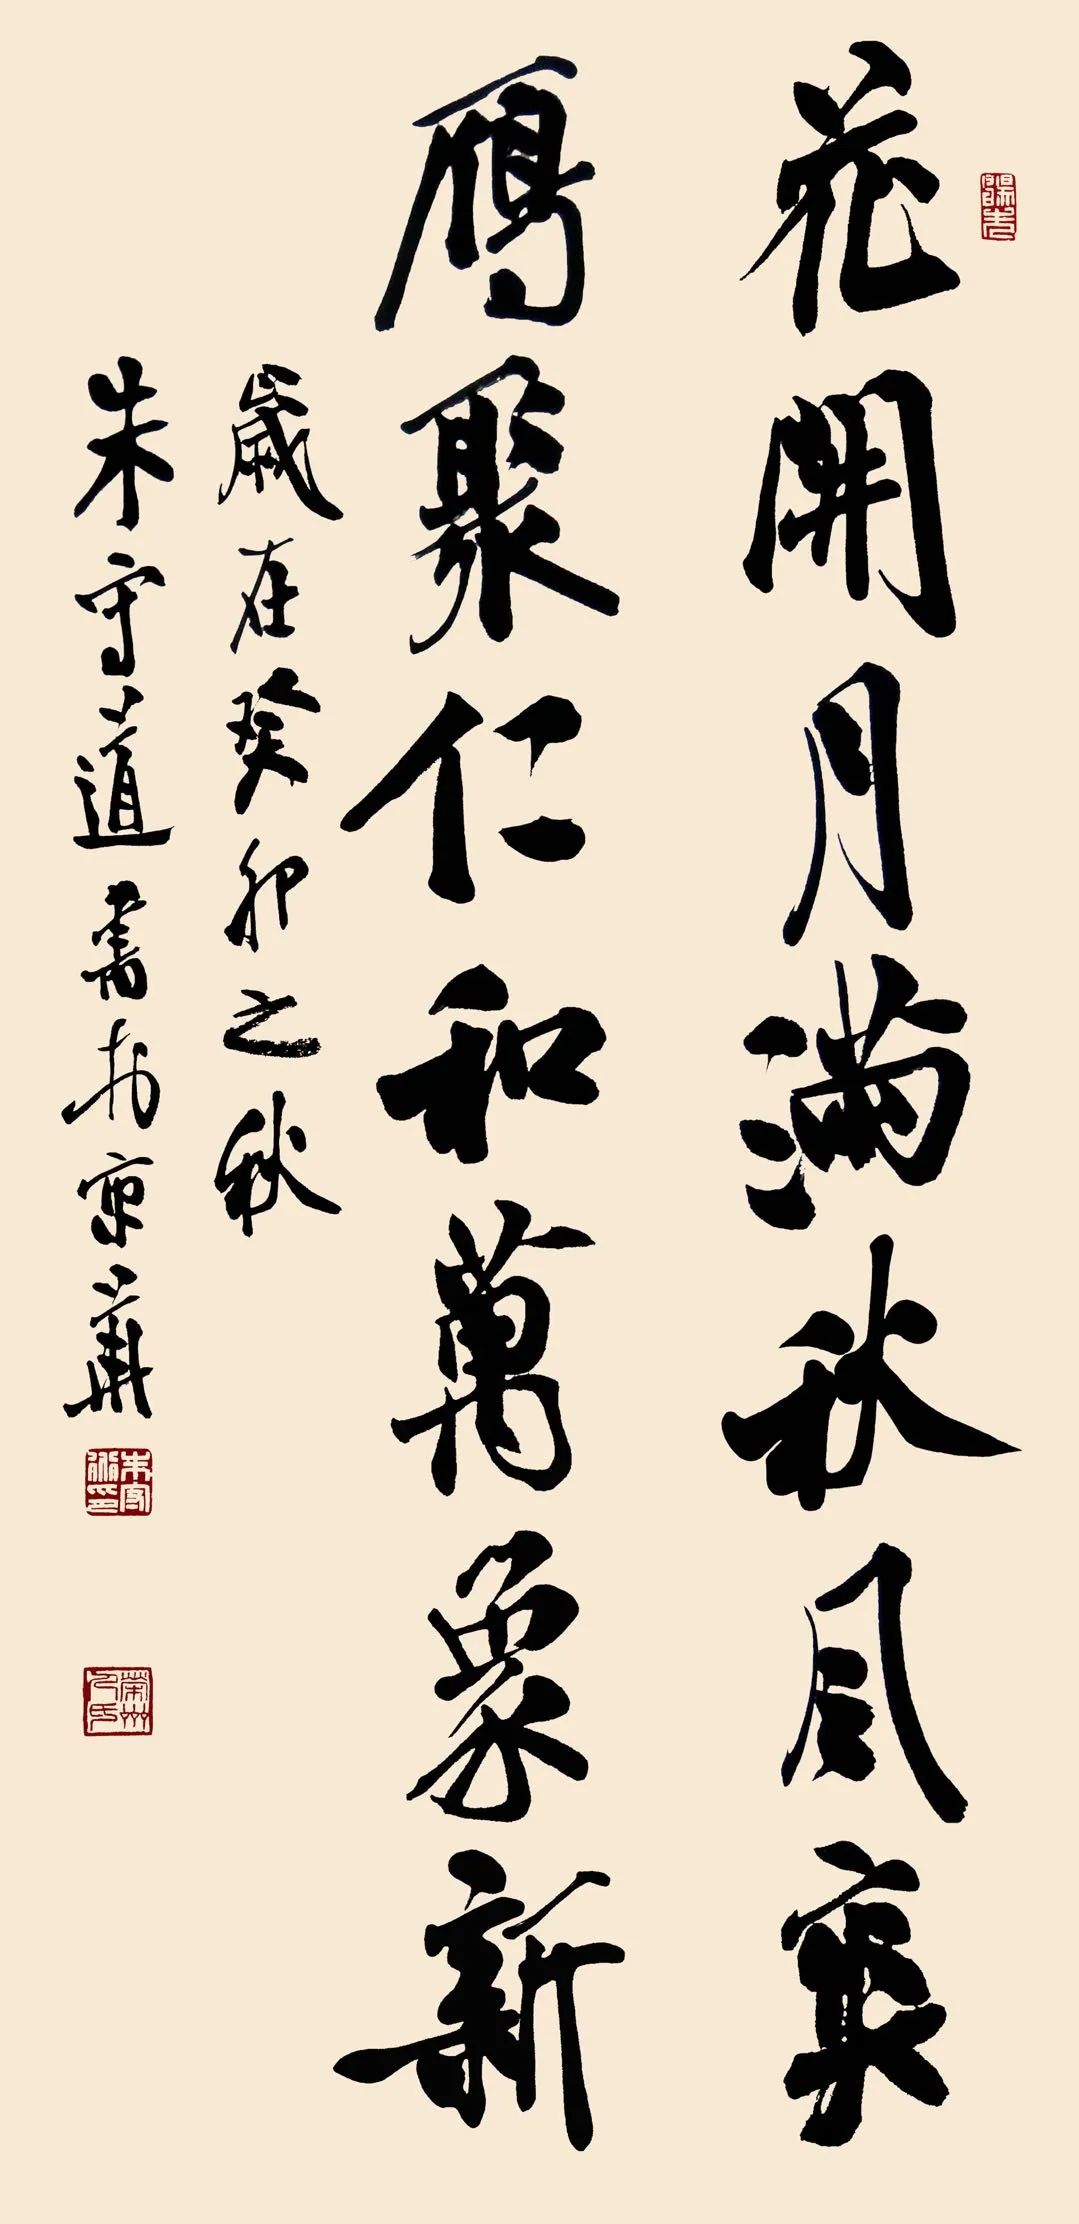 花開月滿秋風爽
鴈聚仁和萬象新
歲在癸卯之秋
朱守道書於京華